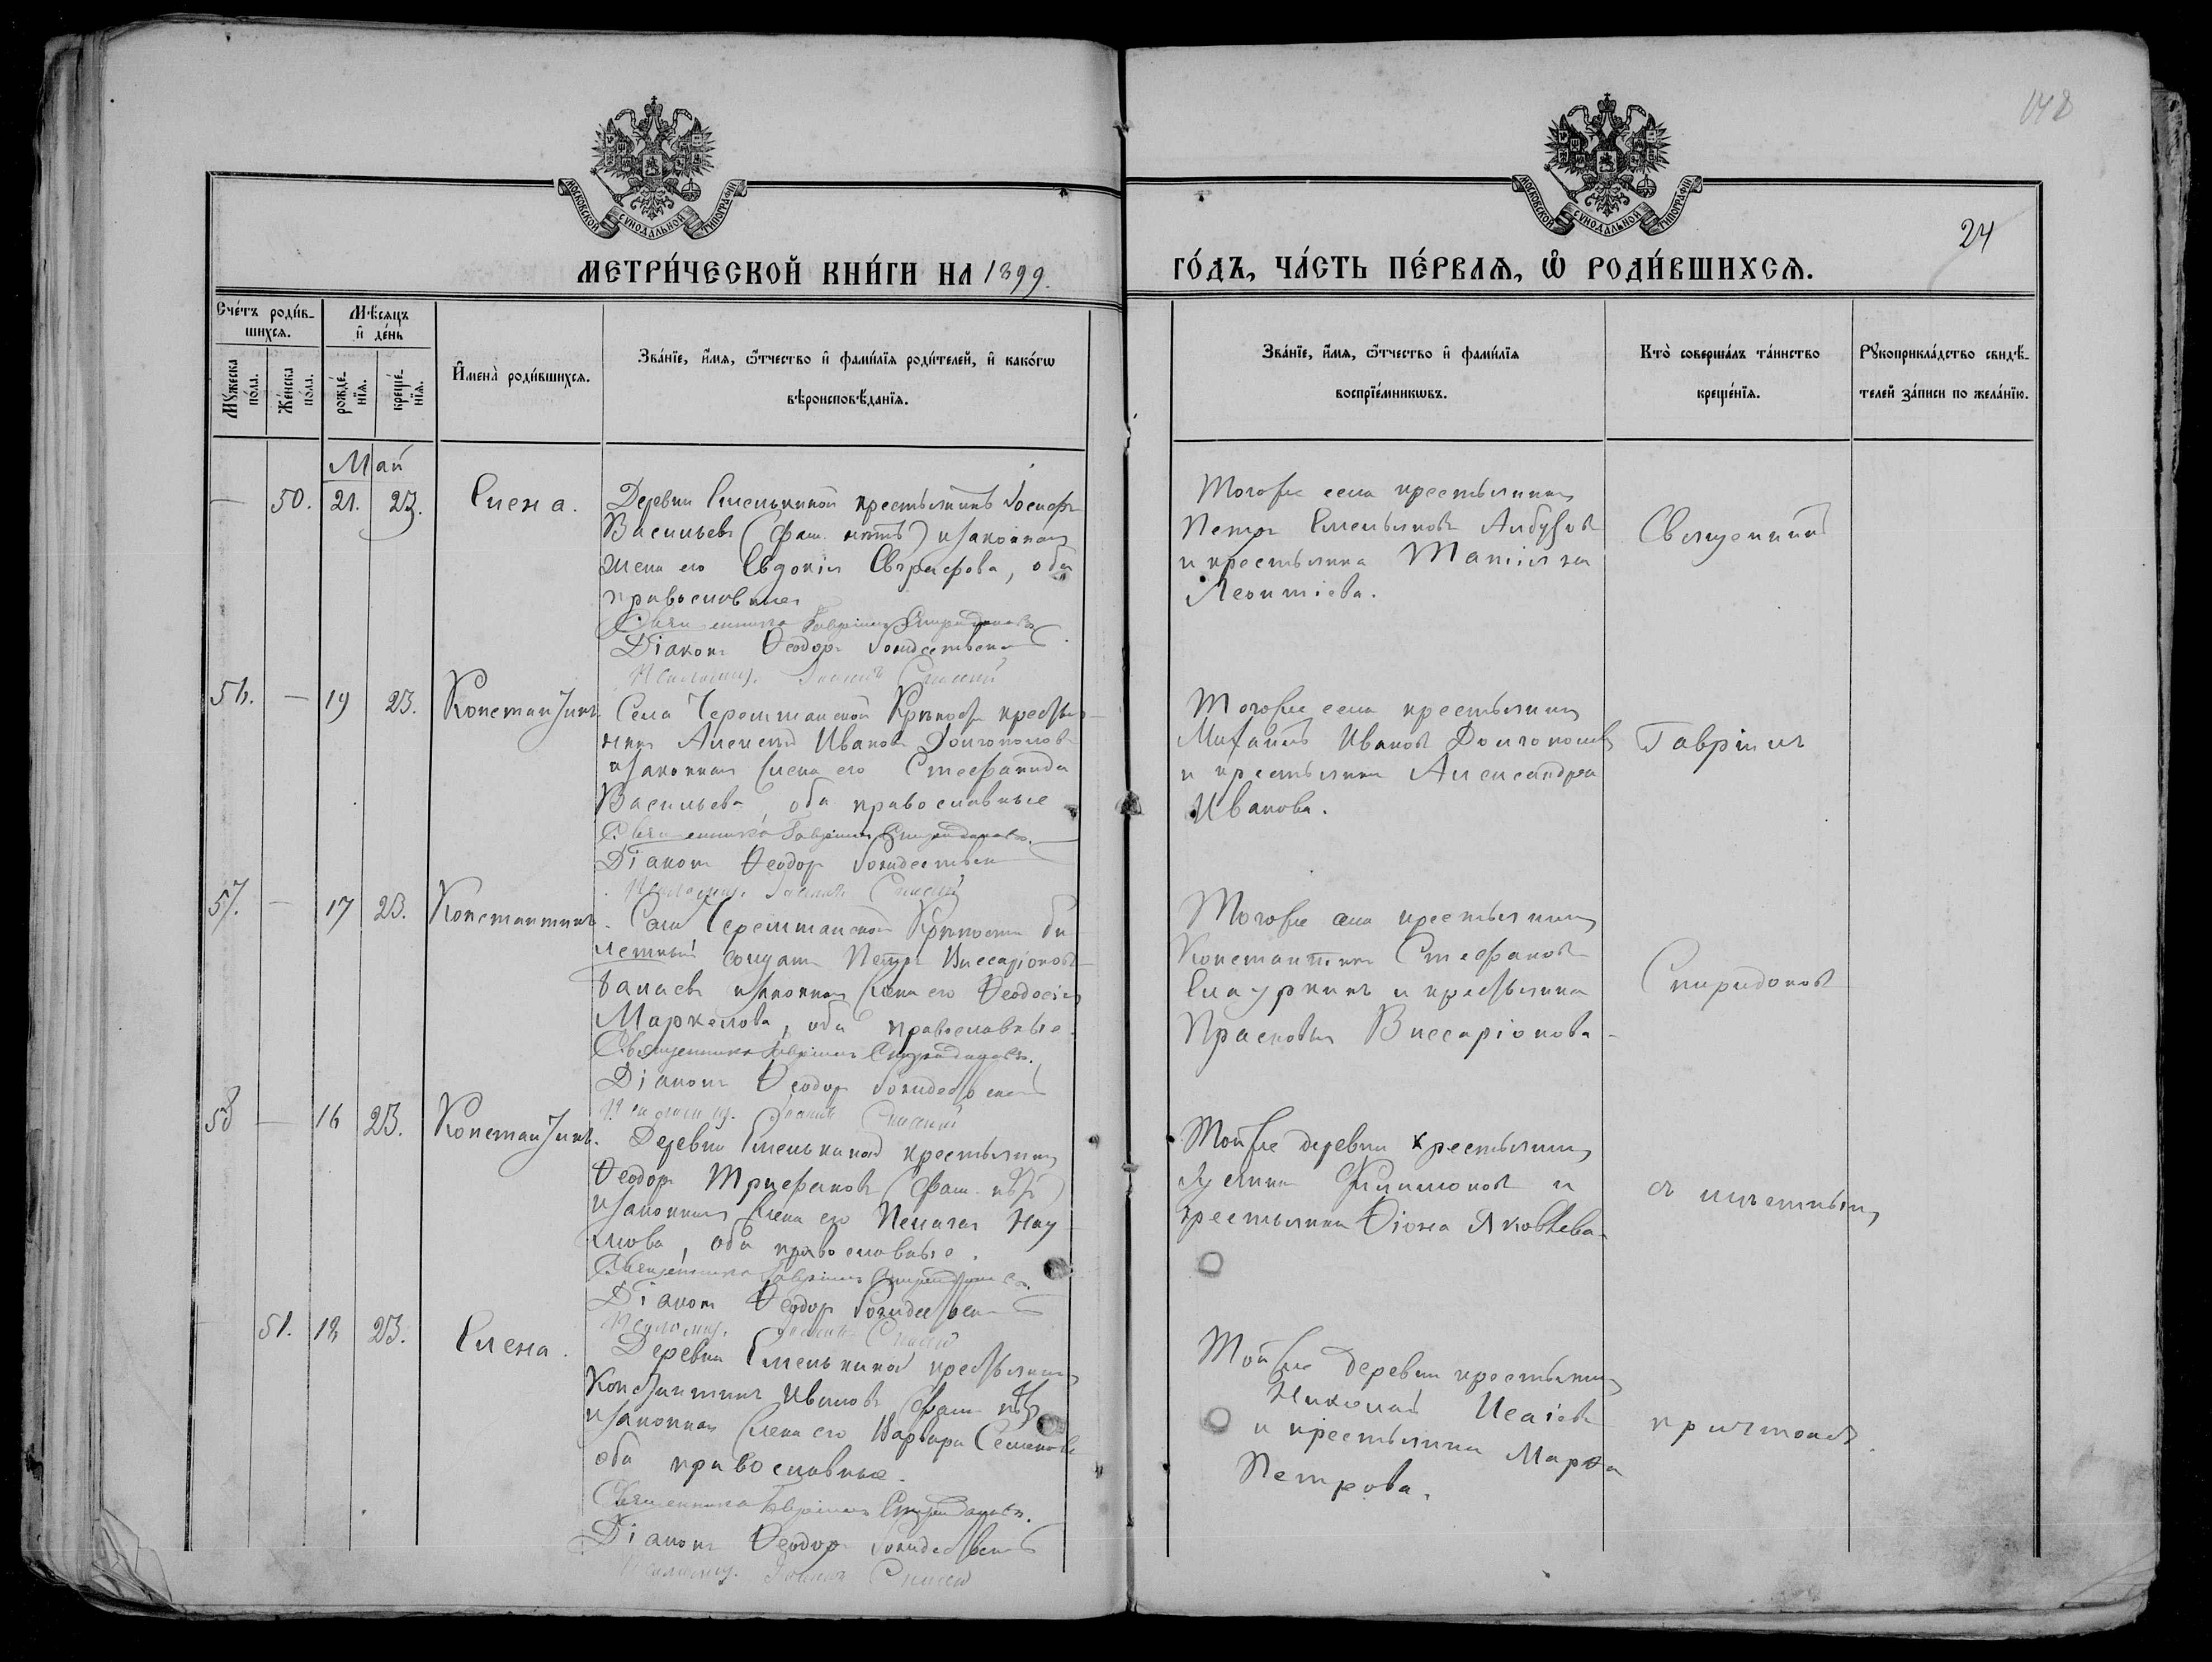 148
24
МОСКОВСКОЙ СУНОДАЛЬНОЙ ТИПОГРАФІИ
МОСКОВСКОЙ СУНОДАЛЬНОЙ ТИПОГРАФІИ
МЕТРИ́ЧЕСКОЙ КНИ́ГИ НА 1899.
ГО́ДЪ, ЧА́СТЬ ПЕ́РВАѦ, Ѡ҆ РОДИ́ВШИХСѦ.
Сче́тъ роди́в-
шихсѧ.
Мꙋ́жеска
по́ла.
Же́нска
по́ла.
Мѣ́сѧцъ
и҆ де́нь
рожде́-
нїѧ.
креще́-
нїѧ.
И҆мена̀ роди́вшихсѧ.
Зва́нїе, и҆́мѧ, ѻ҆́тчество и҆ фами́лїѧ роди́телей, и҆ како́гѡ
вѣроисповѣ́данїѧ.
Зва́нїе, и҆́мѧ, ѻ҆́тчество и҆ фами́лїѧ
воспрїе́мникѡвъ.
Кто̀ соверша́лъ та́инство
креще́нїѧ.
Рꙋкоприкла́дство свидѣ́-
телей за́писи по жела́нїю.
Май
— 50. 21. 23. Елена.
Деревни Емелькиной крестьянинъ Іосифъ
Васильевъ (фам. нѣтъ) и законная
жена его Евдокія Евграфова, оба
православные
Священникъ Гавріилъ Спиридоновъ
Діаконъ Ѳеодоръ Рождественскій
Псаломщ. Іоаннъ Спасскій
Тогоже села крестьянинъ
Петръ Емельяновъ
и крестьянка Татіяна
Леонтіева.
Священникъ
56. — 19 23. Константинъ.
Села Черемшанской Крѣпости кресть-
нинъ Алексѣй Ивановъ Долгополовъ
и законная жена его Стефанида
Васильева, оба православные
Священникъ Гавріилъ Спиридоновъ.
Діаконъ Ѳеодоръ Рождественскій
Псаломщ. Іоаннъ Спасскій
Тогоже села крестьянинъ
Михаилъ Ивановъ Долгополовъ
и крестьянка Александра
Иванова.
Гавріилъ
57. — 17 23. Константинъ.
Села Черемшанской Крѣпости би
летный солдатъ Петръ Виссаріоновъ
и законная жена его Ѳеодосія
Маркелова, оба православные.
Священникъ Гавріилъ Спиридоновъ.
Діаконъ Ѳеодоръ Рождественскій
Псаломщ. Іоаннъ Спасскій
Тогоже села крестьянинъ
Константинъ Стефановъ
и крестьянка
Прасковья Виссаріонова.
Спиридоновъ
58 — 16 23. Константинъ.
Деревни Емелькиной крестьянинъ
Ѳеодоръ Трифановъ (фам. нѣтъ)
и законная жена его Пелагея Нау
мова, оба православные.
Священникъ Гавріилъ Спиридоновъ.
Діаконъ Ѳеодоръ Рождественскій
Псаломщ. Іоаннъ Спасскій
Тойже деревни крестьянинъ
Филимоновъ и
крестьянка Яковлева.
съ мѣстнымъ
51. 18 23. Елена.
Деревни Емелькиной крестьянинъ
Константинъ Ивановъ (фам. нѣтъ)
и законная жена его Варвара Семенова
оба православные.
Священникъ Гавріилъ Спиридоновъ.
Діаконъ Ѳеодоръ Рождественскій
Псаломщ. Іоаннъ Спасскій
Тойже деревни крестьянинъ
Николай Исаіевъ
и крестьянка Марѳа
Петрова.
причтомъ.